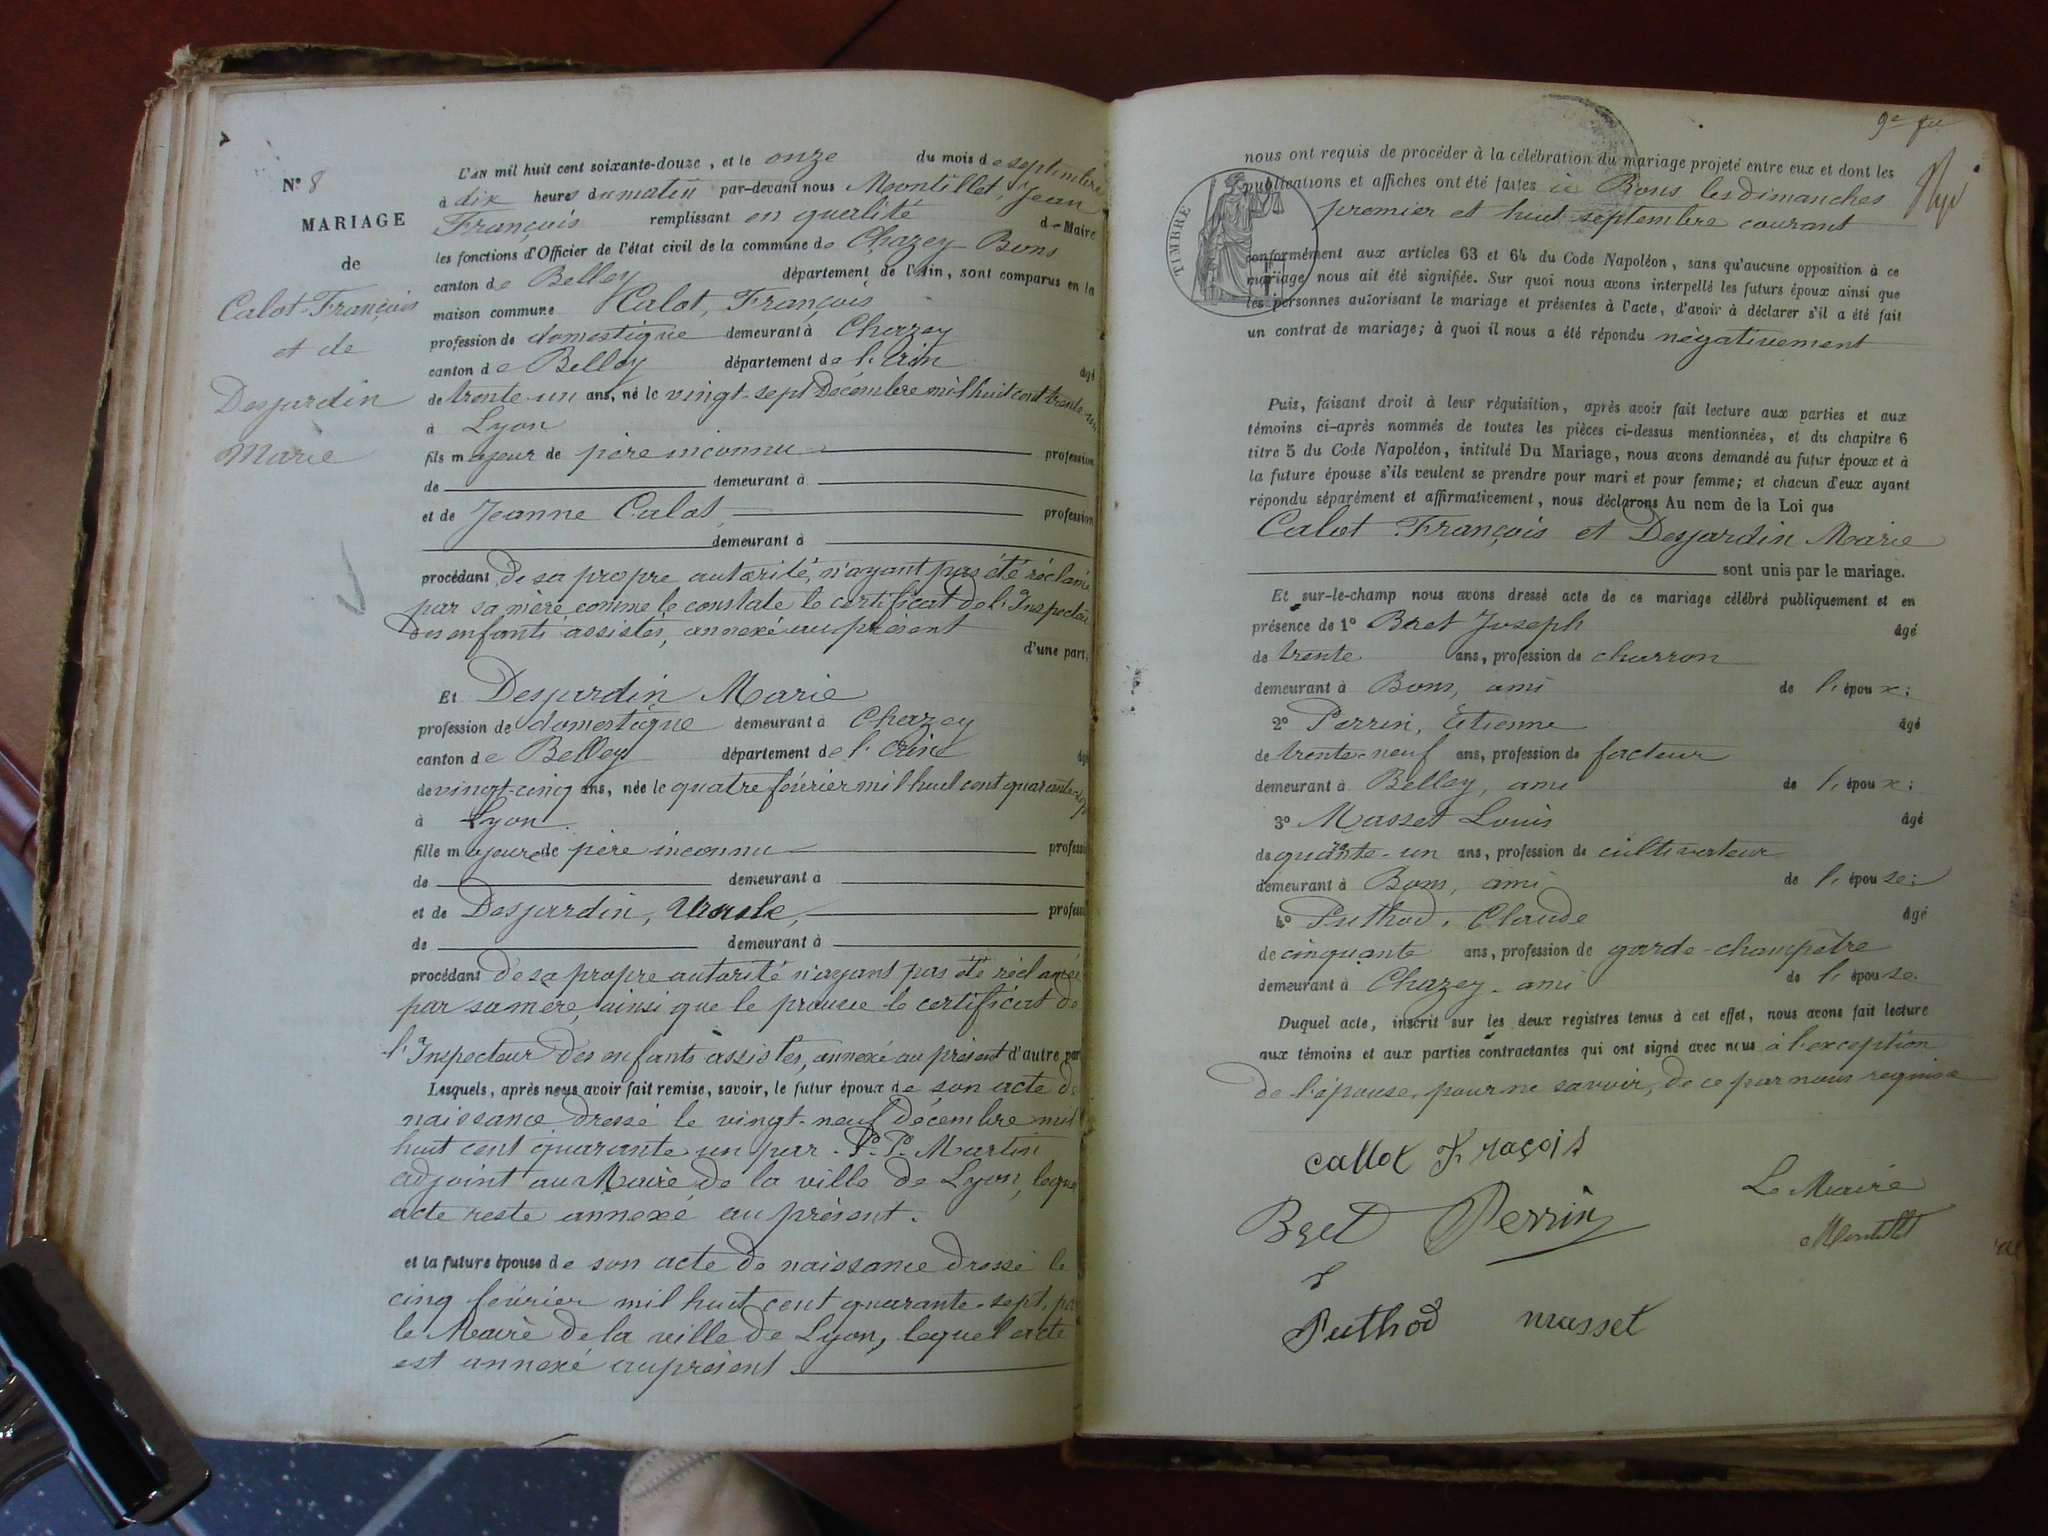 N° 8
MARIAGE
de
Calot François
et de
Desjardin
Marie
L'an mil huit cent soixante-douze, et le onze du mois de septembre
à dix heures du matin par-devant nous Montillet, Jean
François remplissant en qualité de Maire
les fonctions d'Officier de l'état civil de la commune de Chazey-Bons
canton de Belley département de l'Ain, sont comparus en la
maison commune Calot, François
profession de domestique demeurant à Chazey
canton de Belley département de l'Ain âgé
de trente-un ans, né le vingt-sept Décembre mil huit cent trente-un
à Lyon
fils majeur de père inconnu profession
de demeurant à
et de Jeanne Calot, profession
demeurant à
procédant de sa propre autorité, n'ayant pas été réclamé
par sa mère comme le constate le certificat de l'Inspecteur
des enfants assistés, annexé au présent
d'une part;
Et Desjardin Marie
profession de domestique demeurant à Chazey
canton de Belley département de l'Ain âgé
de vingt-cinq ans, née le quatre février mil huit cent quarante-sept
à Lyon.
fille majeure de père inconnu profession
de demeurant à
et de Desjardin, Ursule, profession
de demeurant à
procédant de sa propre autorité n'ayant pas été réclamée
par sa mère, ainsi que le prouve le certificat de
l'Inspecteur des enfants assistés, annexé au présent d'autre part
Lesquels, après nous avoir fait remise, savoir, le futur époux de son acte de
naissance dressé le vingt-neuf décembre mil
huit cent quarante un par P. P. Martin
adjoint au Maire de la ville de Lyon, lequel
acte reste annexé au présent.
et la future épouse de son acte de naissance dressé le
cinq février mil huit cent quarante-sept, par
le Maire de la ville de Lyon, lequel acte
est annexé au présent
9e
nous ont requis de procéder à la célébration du mariage projeté entre eux et dont les
publications et affiches ont été faites à Bons les dimanches
premier et huit septembre courant
TIMBRE
conformément aux articles 63 et 64 du Code Napoléon, sans qu'aucune opposition à ce
mariage nous ait été signifiée. Sur quoi nous avons interpellé les futurs époux ainsi que
les personnes autorisant le mariage et présentes à l'acte, d'avoir à déclarer s'il a été fait
un contrat de mariage; à quoi il nous a été répondu négativement
Puis, faisant droit à leur réquisition, après avoir fait lecture aux parties et aux
témoins ci-après nommés de toutes les pièces ci-dessus mentionnées, et du chapitre 6
titre 5 du Code Napoléon, intitulé Du Mariage, nous avons demandé au futur époux et à
la future épouse s'ils veulent se prendre pour mari et pour femme; et chacun d'eux ayant
répondu séparément et affirmativement, nous déclarons Au nom de la Loi que
Calot François et Desjardin Marie
sont unis par le mariage.
Et sur-le-champ nous avons dressé acte de ce mariage célébré publiquement et en
présence de 1° Bret Joseph âgé
de trente ans, profession de charron
demeurant à Bons, ami de l'époux;
2° Perrin, Étienne âgé
de trente-neuf ans, profession de facteur
demeurant à Belley, ami de l'époux;
3° Masset Louis âgé
de quarante-un ans, profession de cultivateur
demeurant à Bons, ami de l'épouse;
4° Puthod, Claude âgé
de cinquante ans, profession de garde-champêtre
demeurant à Chazey, ami de l'épouse.
Duquel acte, inscrit sur les deux registres tenus à cet effet, nous avons fait lecture
aux témoins et aux parties contractantes qui ont signé avec nous à l'exception
de l'épouse, pour ne savoir, de ce par nous requise
callot Fraçois
Bret Perrin Le Maire
Montillet
Puthod masset